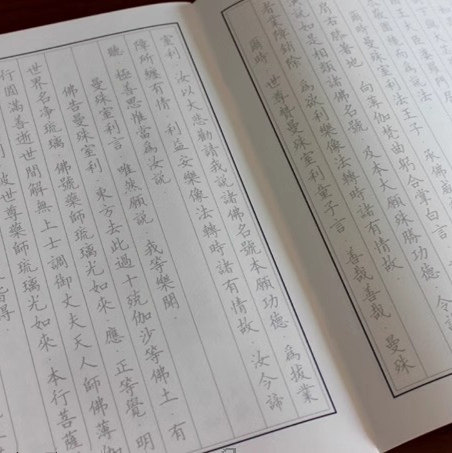 曼殊室利法王子 承佛威
肩右膝著地 向薄伽梵曲躬合掌白言
說如是相類諸佛名號 及本大願殊勝功德 令
者業障銷除 為欲利樂像法轉時諸有情故
爾時 世尊讚曼殊室利童子言 善哉善哉 曼殊
室利 汝以大悲勸請我說諸佛名號本願功德 為拔業
障所纏有情 利益安樂像法轉時諸有情故 汝今諦
聽 極善思惟當為汝說
曼殊室利言 唯然願說 我等樂聞
佛告曼殊室利 東方去此過十殑伽沙等佛土 有
世界名淨琉璃 佛號藥師琉璃光如來 應 正等覺 明
行圓滿善逝世間解無上士調御丈夫天人師佛薄伽
彼世尊藥師琉璃光如來 本行菩薩